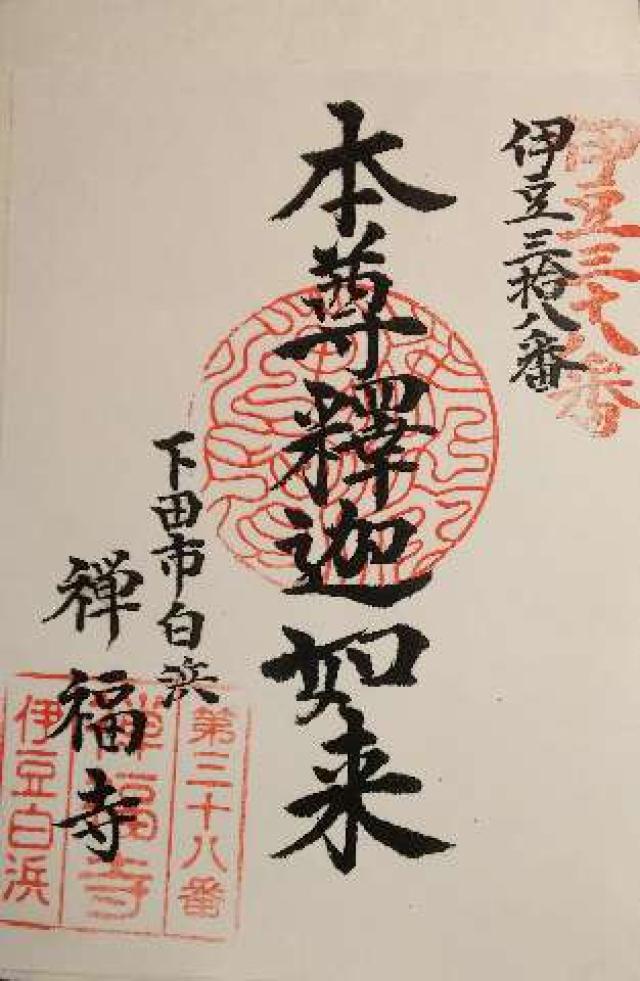 伊豆三十八番
伊豆三拾八番
本尊釋迦如来
下田市白浜
禅福寺
第三十八番
禅福寺
伊豆白浜